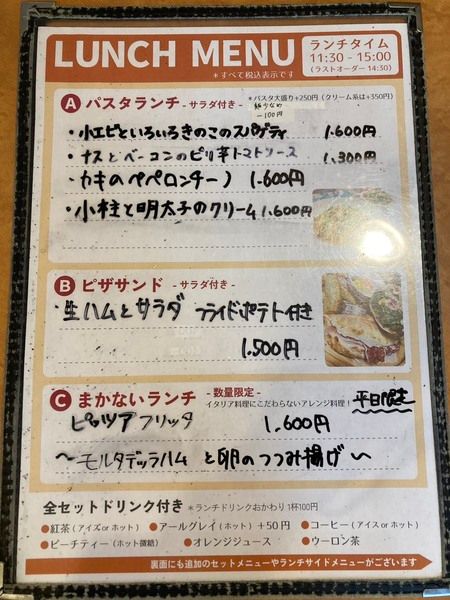 LUNCH MENU
＊すべて税込表示です
ランチタイム
11:30 - 15:00
(ラストオーダー 14:30)
A パスタランチ - サラダ付き -
＊パスタ大盛り+250円 (クリーム系は+350円)
麺少なめ
-100円
・小エビといろいろきのこのスパゲティ 1.600円
・ナスとベーコンのピリ辛トマトソース 1.300円
・カキのペペロンチーノ 1.600円
・小柱と明太子のクリーム 1.600円
B ピザサンド - サラダ付き -
・生ハムとサラダ フライドポテト付き
1.500円
C まかないランチ - 数量限定 -
イタリア料理にこだわらないアレンジ料理！
平日限定
ピッツァフリッタ 1.600円
〜モルタデッラハムと卵のつつみ揚げ〜
全セットドリンク付き ＊ランチドリンクおかわり1杯100円
●紅茶 (アイス or ホット) ●アールグレイ (ホット) +50円 ●コーヒー (アイス or ホット)
●ピーチティー (ホット微糖) ●オレンジジュース ●ウーロン茶
裏面にも追加のセットメニューやランチサイドメニューがございます